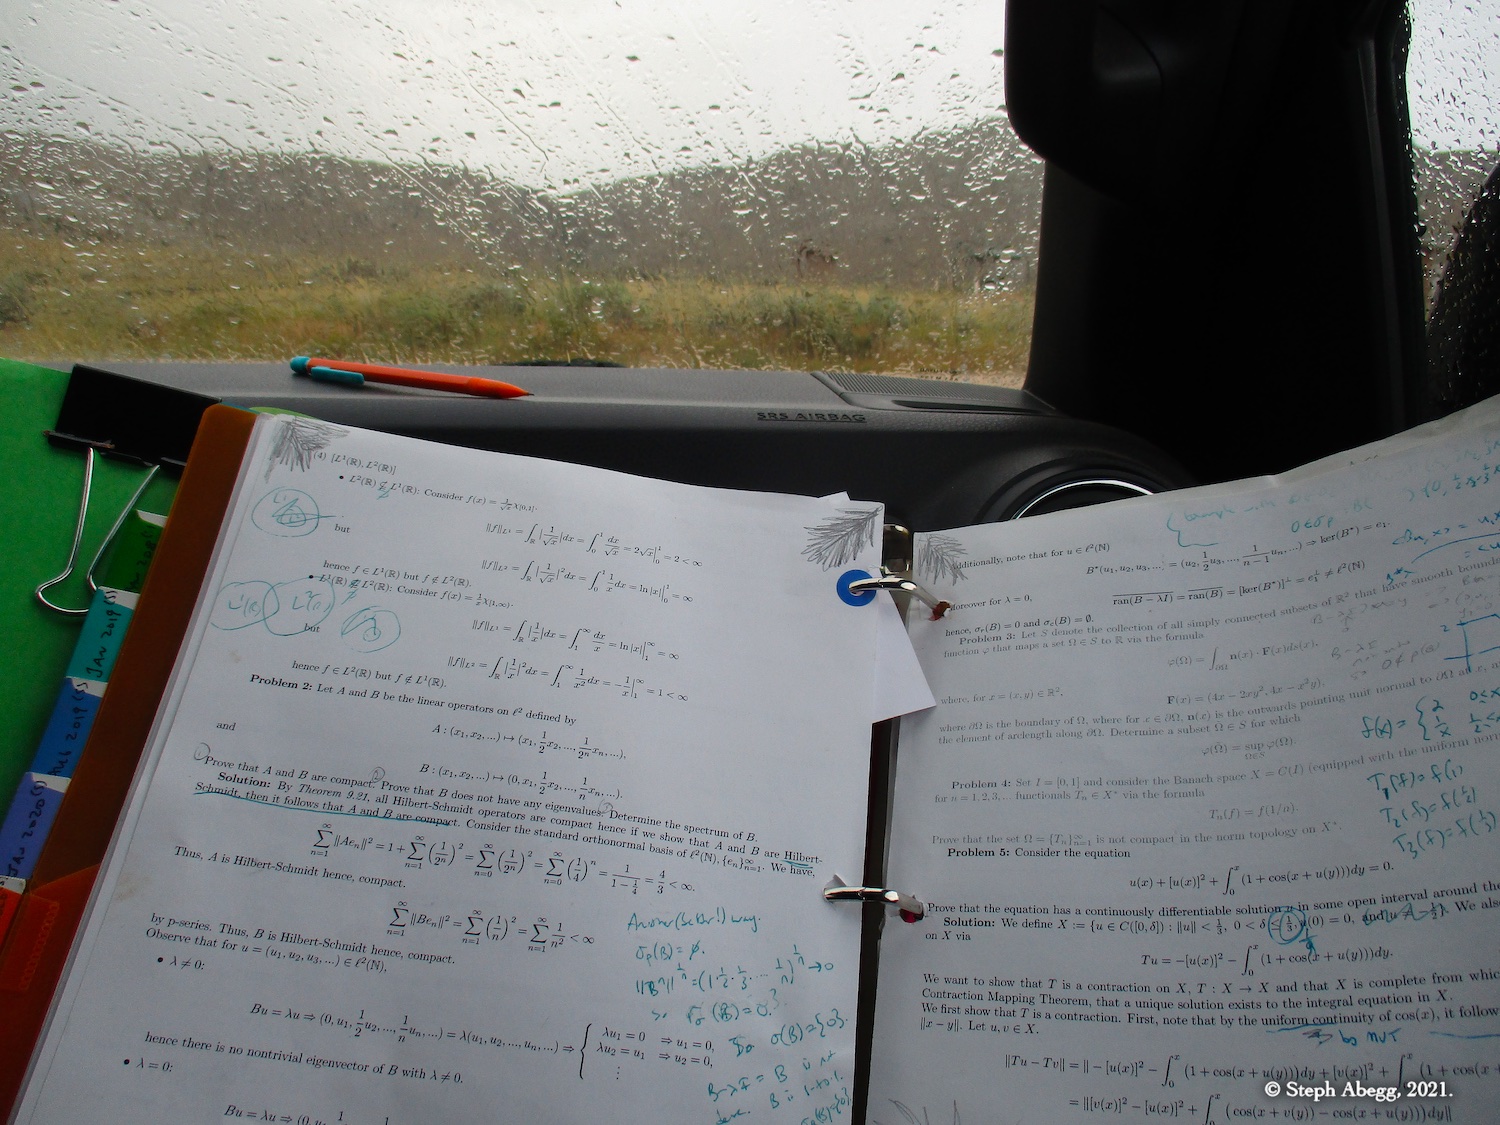 SRS AIRBAG
JAN 2019 (S)
Aug 2019 (S)
JAN 2020 (S)
(4) [L¹(ℝ), L²(ℝ)]
• L²(ℝ) ⊄ L¹(ℝ): Consider f(x) = 1/√x χ[0,1].
‖f‖_{L¹} = ∫_ℝ |1/√x| dx = ∫_0^1 dx/√x = 2√x|_0^1 = 2 < ∞
but
‖f‖_{L²} = ∫_ℝ |1/√x|² dx = ∫_0^1 1/x dx = ln |x||_0^1 = ∞
hence f ∈ L¹(ℝ) but f ∉ L²(ℝ).
• L¹(ℝ) ⊄ L²(ℝ): Consider f(x) = 1/x χ[1,∞).
L¹(ℝ) L²(ℝ)
‖f‖_{L¹} = ∫_ℝ |1/x| dx = ∫_1^∞ dx/x = ln |x||_1^∞ = ∞
but
‖f‖_{L²} = ∫_ℝ |1/x|² dx = ∫_1^∞ 1/x² dx = −1/x|_1^∞ = 1 < ∞
hence f ∈ L²(ℝ) but f ∉ L¹(ℝ).
Problem 2: Let A and B be the linear operators on ℓ² defined by
A : (x₁, x₂, ...) ↦ (x₁, 1/2 x₂, ..., 1/2ⁿ xₙ, ...),
and
B : (x₁, x₂, ...) ↦ (0, x₁, 1/2 x₂, ..., 1/n xₙ, ...).
Prove that A and B are compact. Prove that B does not have any eigenvalues. Determine the spectrum of B.
Solution: By Theorem 9.21, all Hilbert-Schmidt operators are compact hence if we show that A and B are Hilbert-
Schmidt, then it follows that A and B are compact. Consider the standard orthonormal basis of ℓ²(ℕ), {eₙ}_{n=1}^∞. We have,
∑_{n=1}^∞ ‖Aeₙ‖² = 1 + ∑_{n=1}^∞ (1/2ⁿ)² = ∑_{n=0}^∞ (1/2ⁿ)² = ∑_{n=0}^∞ (1/4)ⁿ = 1/(1 − 1/4) = 4/3 < ∞.
Thus, A is Hilbert-Schmidt hence, compact.
∑_{n=1}^∞ ‖Beₙ‖² = ∑_{n=1}^∞ (1/n)² = ∑_{n=1}^∞ 1/n² < ∞
by p-series. Thus, B is Hilbert-Schmidt hence, compact.
Observe that for u = (u₁, u₂, u₃, ...) ∈ ℓ²(ℕ),
• λ ≠ 0:
Bu = λu ⇒ (0, u₁, 1/2 u₂, ..., 1/n uₙ, ...) = λ(u₁, u₂, ..., uₙ, ...) ⇒ { λu₁ = 0 ⇒ u₁ = 0,
λu₂ = u₁ ⇒ u₂ = 0,
⋮
hence there is no nontrivial eigenvector of B with λ ≠ 0.
• λ = 0:
Bu = λu ⇒ (0, u₁, 1
Another (better!) way.
σₚ(B) = ∅.
‖Bⁿ‖^{1/n} = (1·1/2·1/3···1/n)^{1/n} → 0
so r_σ(B) = 0.
So σ(B) = {0}.
B − λI = B is not
B is 1-to-1.
additionally, note that for u ∈ ℓ²(ℕ)
B*(u₁, u₂, u₃, ...) = (u₂, 1/2 u₃, ..., 1/(n−1) uₙ, ...) ⇒ ker(B*) = e₁.
Moreover for λ = 0,
ran(B − λI) = ran(B) = [ker(B*)]^⊥ = e₁^⊥ ≠ ℓ²(ℕ)
hence, σᵣ(B) = 0 and σ_c(B) = ∅.
Problem 3: Let S denote the collection of all simply connected subsets of ℝ² that have smooth bounda
function φ that maps a set Ω ∈ S to ℝ via the formula
φ(Ω) = ∫_{∂Ω} n(x) · F(x)ds(x),
where, for x = (x, y) ∈ ℝ²,
F(x) = (4x − 2xy², 4x − x²y).
where ∂Ω is the boundary of Ω, where for x ∈ ∂Ω, n(x) is the outwards pointing unit normal to ∂Ω at x, a
the element of arclength along ∂Ω. Determine a subset Ω ∈ S for which
φ(Ω) = sup_{Ω∈S} φ(Ω).
f(x) = { 2
1/x
Problem 4: Set I = [0, 1] and consider the Banach space X = C(I) (equipped with the uniform nor
for n = 1, 2, 3, ... functionals Tₙ ∈ X* via the formula
Tₙ(f) = f(1/n).
T₁(f) = f(1)
T₂(f) = f(1/2)
T₃(f) = f(1/3)
Prove that the set Ω = {Tₙ}_{n=1}^∞ is not compact in the norm topology on X*.
Problem 5: Consider the equation
u(x) + [u(x)]² + ∫_0^x (1 + cos(x + u(y)))dy = 0.
Prove that the equation has a continuously differentiable solution u in some open interval around the
Solution: We define X := {u ∈ C([0, δ]) : ‖u‖ < 1/3, 0 < δ ≤ 1/3, u(0) = 0, We also
on X via
Tu = −[u(x)]² − ∫_0^x (1 + cos(x + u(y)))dy.
We want to show that T is a contraction on X, T : X → X and that X is complete from whic
Contraction Mapping Theorem, that a unique solution exists to the integral equation in X.
We first show that T is a contraction. First, note that by the uniform continuity of cos(x), it follow
‖x − y‖. Let u, v ∈ X.
by MVT
‖Tu − Tv‖ = ‖ − [u(x)]² − ∫_0^x (1 + cos(x + u(y)))dy + [v(x)]² + ∫_0^x (1 + cos(x +
= ‖[v(x)]² − [u(x)]² + ∫_0^x (cos(x + v(y)) − cos(x + u(y)))dy‖
© Steph Abegg, 2021.